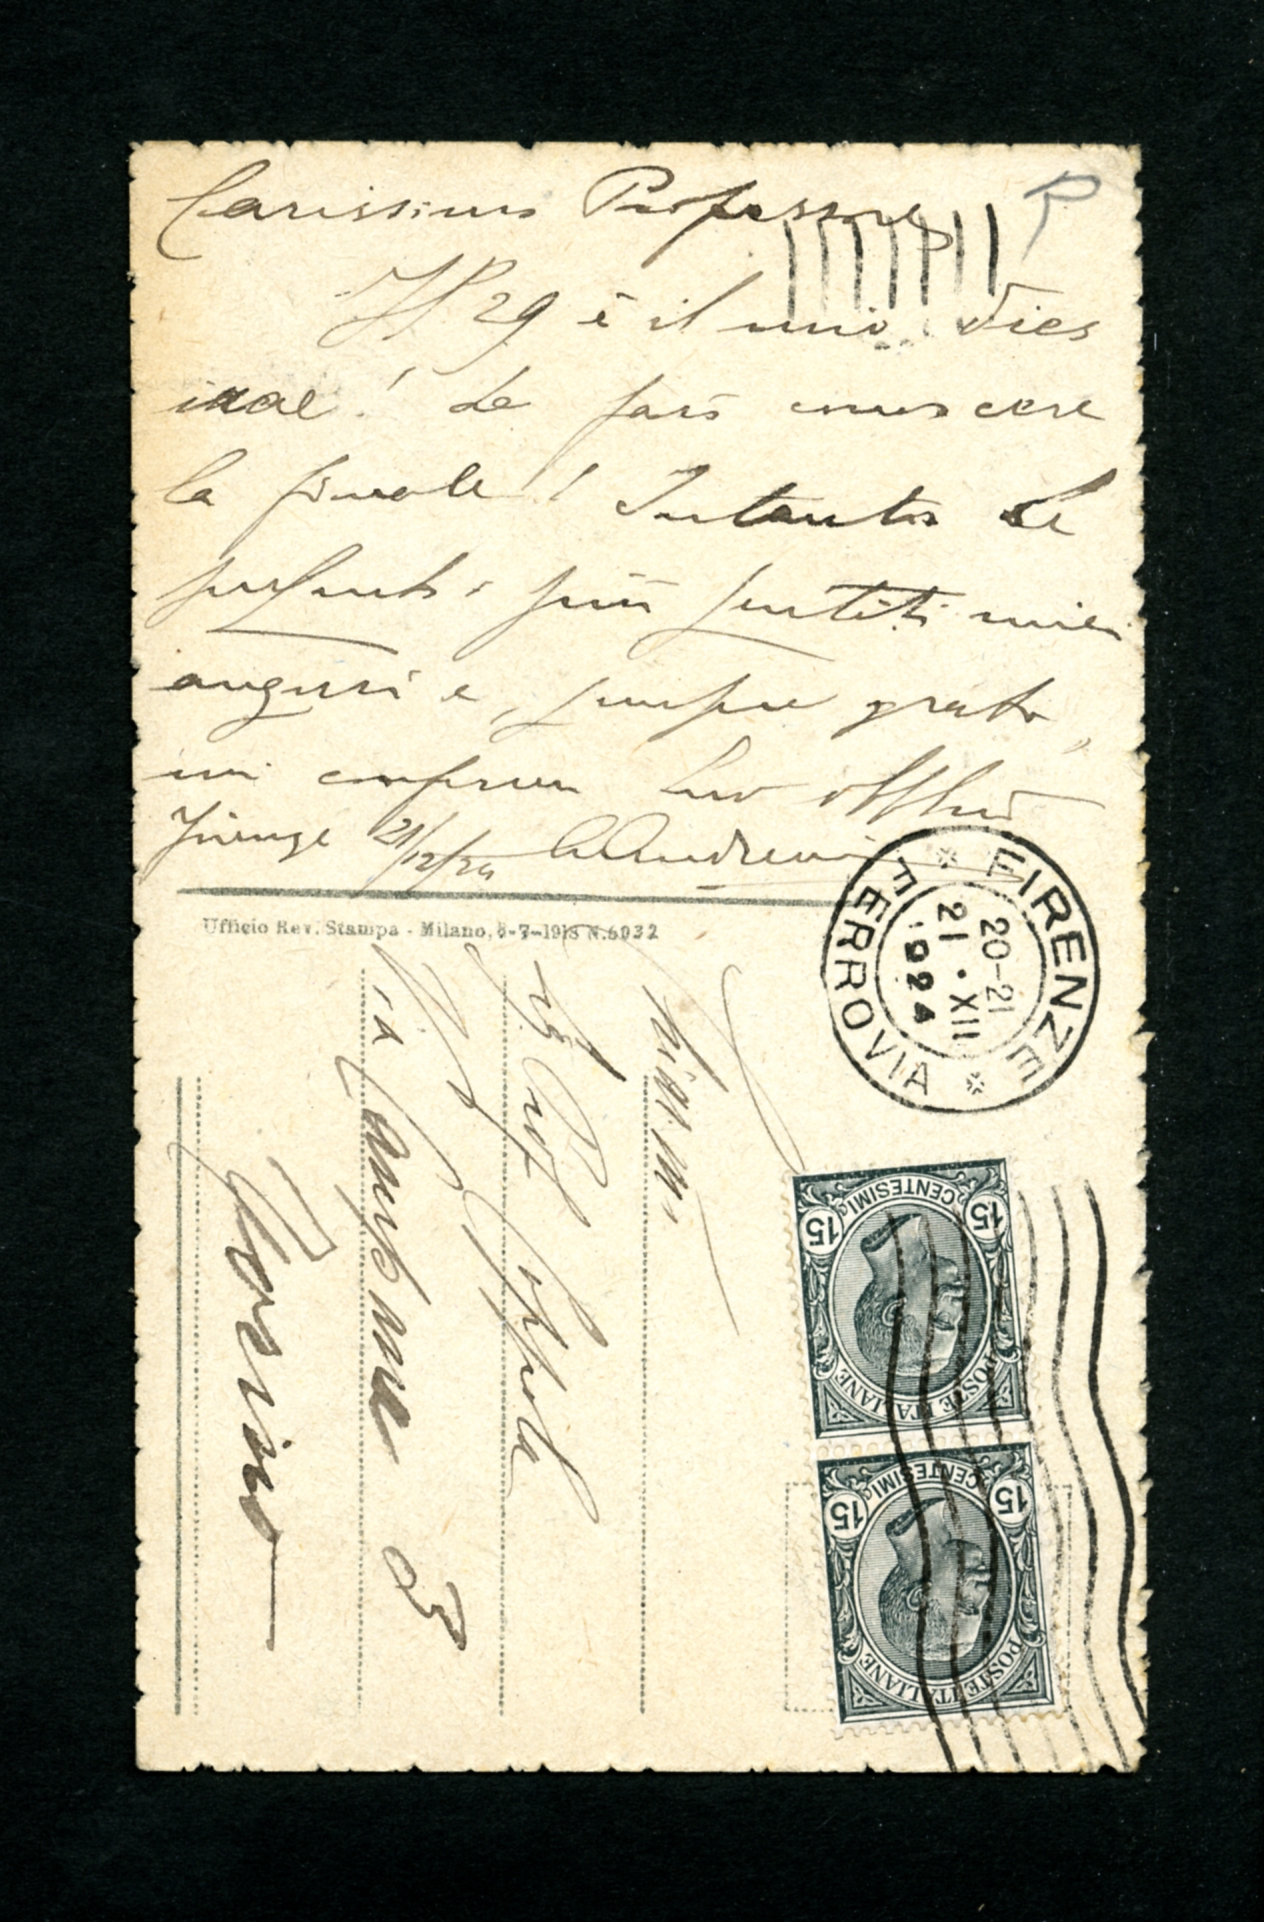 Carissimo Professore,
Il 29 è il mio dies
irae! Le farò conoscere
la finale! Intanto Le
più sentiti miei
auguri e, sempre grato,
mi confermo Suo
Firenze 21/12/24
Ufficio Rev. Stampa - Milano, 8-7-1918 N. 6932
FIRENZE
FERROVIA
20-21
21 • XII
1924
Prof
Via Campana 3
Torino
15 CENTESIMI 15
POSTE ITALIANE
15 CENTESIMI 15
POSTE ITALIANE